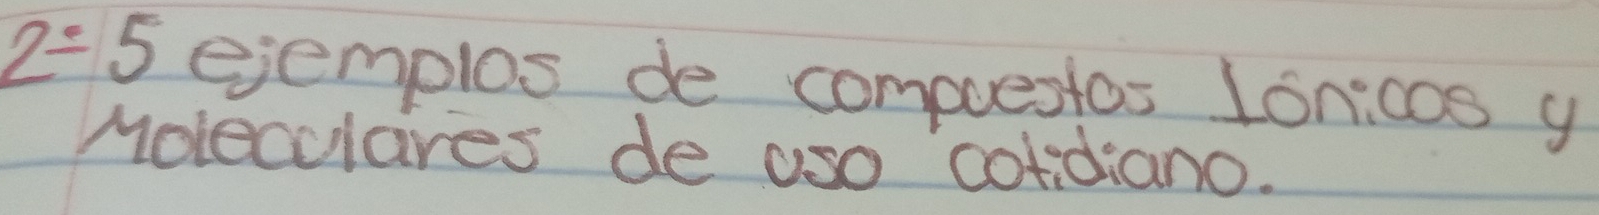 2- 5 ejemplos de compuestos Iónicos y
Moleculares de uso cotidiano.